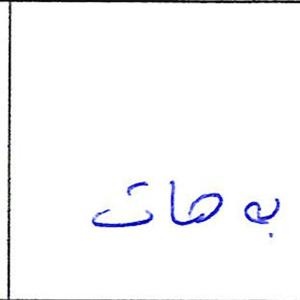 بەهات